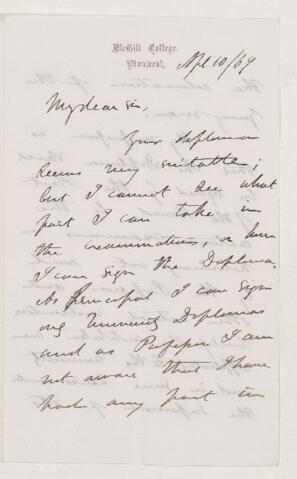 McGill College,
Montreal,
Apl 10/69
My dear sir,
Your diploma
seems very suitable;
but I cannot see what
part I can take in
the examination, or how
I can sign the Diploma.
As Principal I can sign
only University Diplomas
and as Professor I am
not aware that I have
had any part in